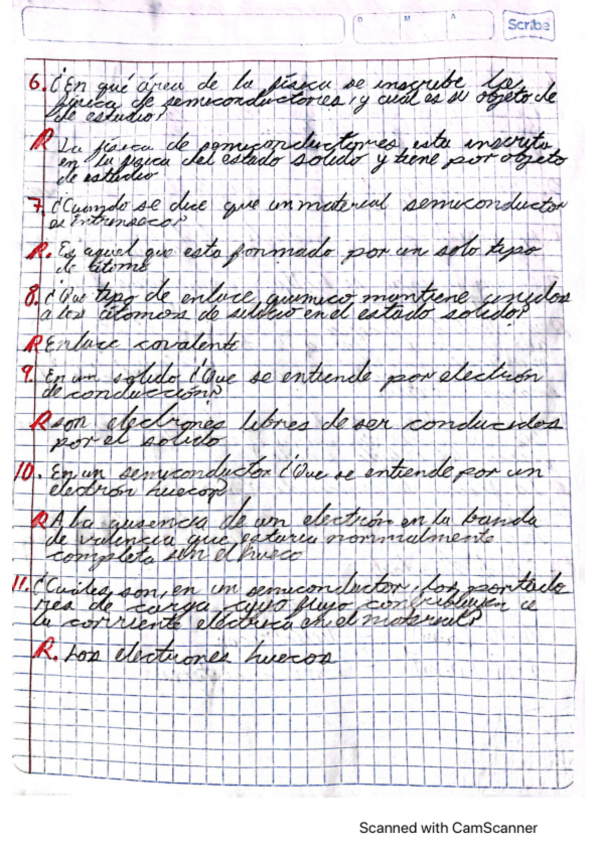 D M A Scribe
6. ¿En qué área de la física se inscribe la
física de semiconductores, y cual es su objeto de
de estudio?
R La física de semiconductores esta inscrita
en la fisica del estado solido y tiene por objeto
de estudio
7. ¿Cuando se dice que un material semiconductor
es intrinseco?
R. Es aquel que esta formado por un solo tipo
de átomo
8. ¿Que tipo de enlace quimico mantiene unidos
a los átomos de silicio en el estado solido?
R Enlace covalente
9. En un solido ¿Que se entiende por electrón
de conducción?
R son electrones libres de ser conducidos
por el solido
10. En un semiconductor ¿Que se entiende por un
electrón hueco?
R A la ausencia de un electrón en la banda
de valencia que estaria normalmente
completa sin el hueco
11. ¿Cuáles son, en un semiconductor, los portado
res de carga cuyo flujo contribuyen a
la corriente eléctrica en el material?
R. Los electrones huecos
Scanned with CamScanner